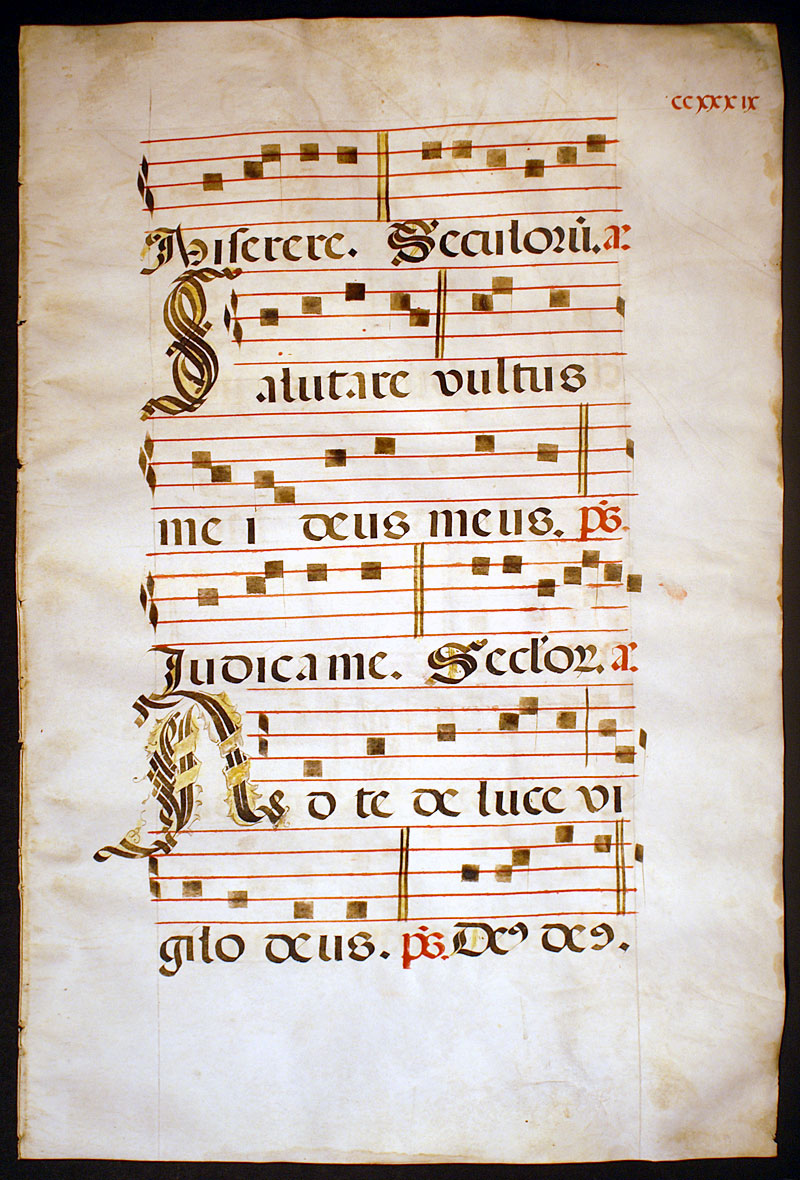 CCXXXIX
Miserere. Seculorū. a.
Salutare vultus
me i deus meus. ps.
Iudica me. Seclor. a.
Ad te de luce vi
gilo deus. ps. De9 de9.